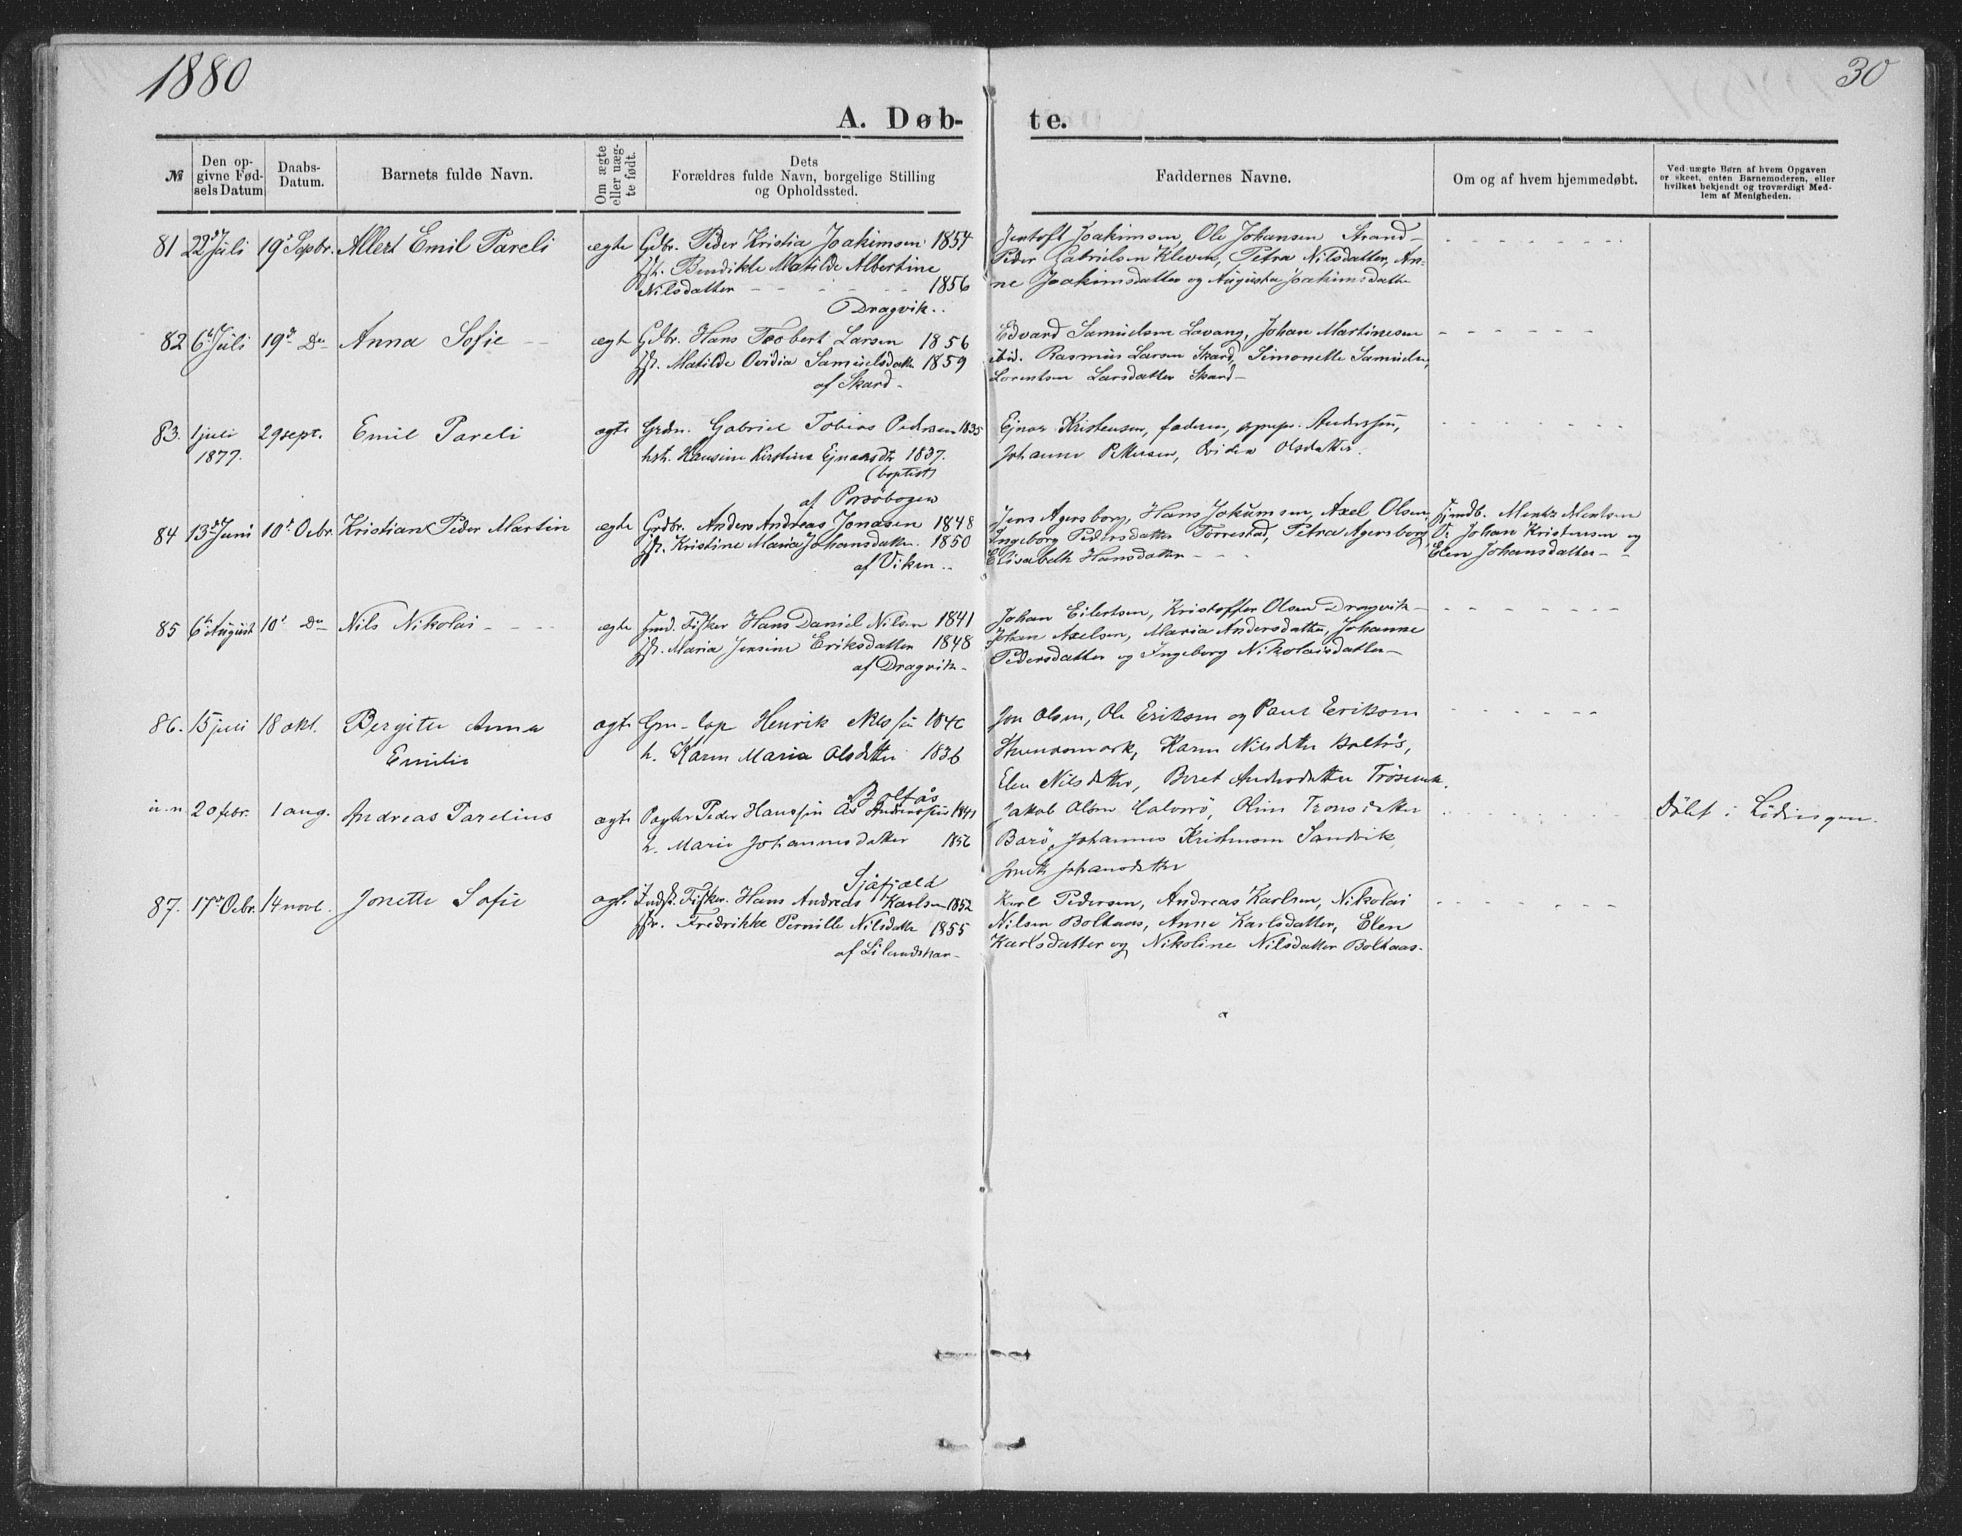 1880
30
A. Døb-
te.
№
Den op-
givne Fød-
sels Datum
Daabs-
Datum.
Barnets fulde Navn.
Om ægte
eller uæg-
te født.
Dets
Forældres fulde Navn, borgelige Stilling
og Opholdssted.
Faddernes Navne.
Om og af hvem hjemmedøbt.
Ved uægte Børn af hvem Opgaven
er skeet, enten Barnemoderen, eller
hvilket bekjendt og troværdigt Med-
lem af Menigheden.
81 22 Juli 19 Sepbr. Albert Emil Pareli ægte Gdbr. Peder Kristia Joakimsen 1854
Bendikte Matilde Albertine
Nilsdatter 1856
Dragvik
Jentoft Joakimsen, Ole Johansen Strand
Peder Gabrielsen Kleven, Petra Nilsdatter, An-
ne Joakimsdatter og Augusta Joakimsdatter
82 6 Juli 19 Do Anna Sofie ægte Gdbr. Hans Larsen 1856
Matilde Ovidia Samuelsdatter 1859
af Skard
Edvard Samuelsen Lavang, Johan Martinesen
ibid. Rasmus Larsen Skard, Simonette Samuels,
Lorentsen Larsdatter Skard
83. 1 juli 29 sept. Emil Pareli ægte Gabriel Tobias Pedersen 1835
1877. Hansine Kirstine Ejnarsdtr 1837.
(baptist)
af Porsøbogen
Ejnar Kristensen, faderen, Anderssøn,
Johanne Pettersen, Ovidia Olsdatter.
84 13 Juni 10 Ocbr. Kristian Peder Martin ægte Grdbr. Anders Andreas Jonasen 1848
Kristine Maria Johansdatter 1850
af Viken
Jens Agersborg, Hans Jokumsen, Axel Olsen,
Ingeborg Pedersdatter Torrestad, Petra Agersborg,
Elisabeth Hansdatter
Mentz Mentsen
Johan Kristensen og
Elen Johansdatter
85 6 August 10 Do Nils Nikolai ægte Fisker Hans Daniel Nilsen 1841
Maria Jensine Eriksdatter 1848
af Dragvik
Johan Eilertsen, Kristoffer Olsen Dragvik
Johan Axelsen, Maria Andersdatter, Johanne
Pedersdatter og Ingeborg Nikolaisdatter
86. 15 juli 18 okt. Bergitte Anna ægte Henrik Nilssøn
Emilie
h. Karen Maria Olsdatter 1836
Boltås
Jon Olsen, Ole Eriksen og Paul Eriksen
Karen Nilsdatter Boltås,
Elen Nilsdatter, Beret Andersdatter
u.n. 20 febr. 1 aug. Andreas Parelius ægte Peder Hanssøn
h. Marie Johannesdatter 1856
Jakob Olsen
Barø, Johannes Kristensen Sandvik,
Døbt i Lødingen.
Sjåfjæld
87. 17 Ocbr. 14 novb. Jonette Sofie ægt. Indst. Fisker Hans Andreas Karlsen 1852
Fredrikke Pernille Nilsdatter 1855
af Lilandskar
Karl Pedersen, Andreas Karlsen, Nikolai
Nilsen Boltaas, Anne Karlsdatter, Elen
Karlsdatter og Nikoline Nilsdatter Boltaas